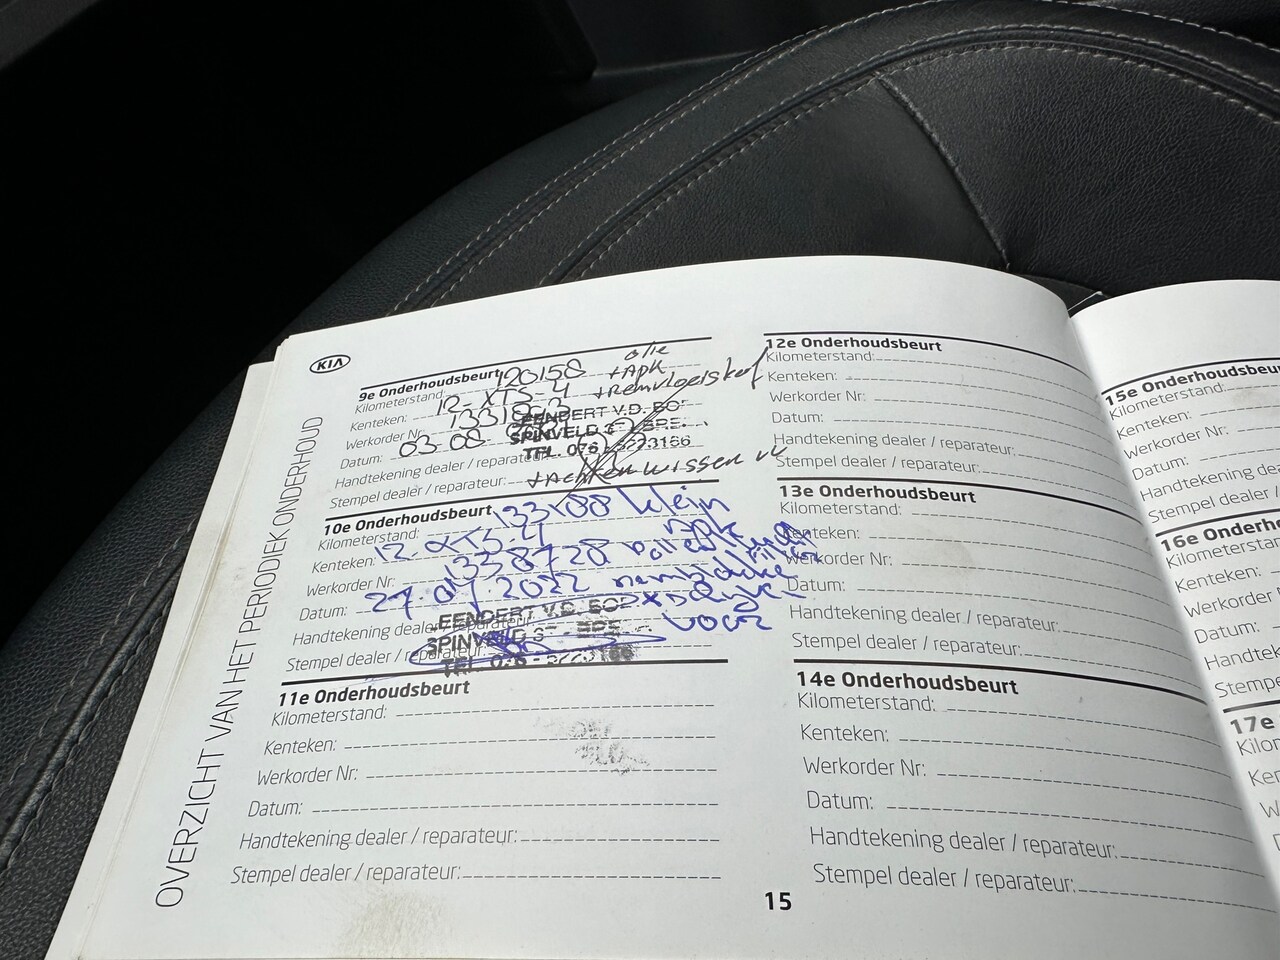 KIA
OVERZICHT VAN HET PERIODIEK ONDERHOUD
9e Onderhoudsbeurt
olie
Kilometerstand: 120158 + Apk
Kenteken: 12-XTS-4 + Remvloeistof
Werkorder Nr:
EENDERT V.D. BO
Datum: 03-08
SPINVELD 37 - BRE
TEL. 076 - 5223166
Handtekening dealer / reparateur:
Stempel dealer / reparateur: + Achter wissen
10e Onderhoudsbeurt
Kilometerstand: klein
Kenteken: 12-XTS-4 apk
Werkorder Nr: 1338728
Datum: 27 2022 remblokken
EENDERT V.D. BO
Handtekening dealer / reparateur:
SPINVELD 37 - BRE voor
Stempel dealer / reparateur:
TEL. 076 - 5223166
11e Onderhoudsbeurt
Kilometerstand:
Kenteken:
Werkorder Nr:
Datum:
Handtekening dealer / reparateur:
Stempel dealer / reparateur:
12e Onderhoudsbeurt
Kilometerstand:
Kenteken:
Werkorder Nr:
Datum:
Handtekening dealer / reparateur:
Stempel dealer / reparateur:
13e Onderhoudsbeurt
Kilometerstand:
Kenteken:
Werkorder Nr:
Datum:
Handtekening dealer / reparateur:
Stempel dealer / reparateur:
14e Onderhoudsbeurt
Kilometerstand:
Kenteken:
Werkorder Nr:
Datum:
Handtekening dealer / reparateur:
Stempel dealer / reparateur:
15
15e Onderhoudsbeu
Kilometerstand:
Kenteken:
Werkorder Nr:
Datum:
Handtekening dea
Stempel dealer /
16e Onderho
Kilometerstar
Kenteken:
Werkorder
Datum:
Handteke
Stempe
17e
Kilon
Ken
W
D